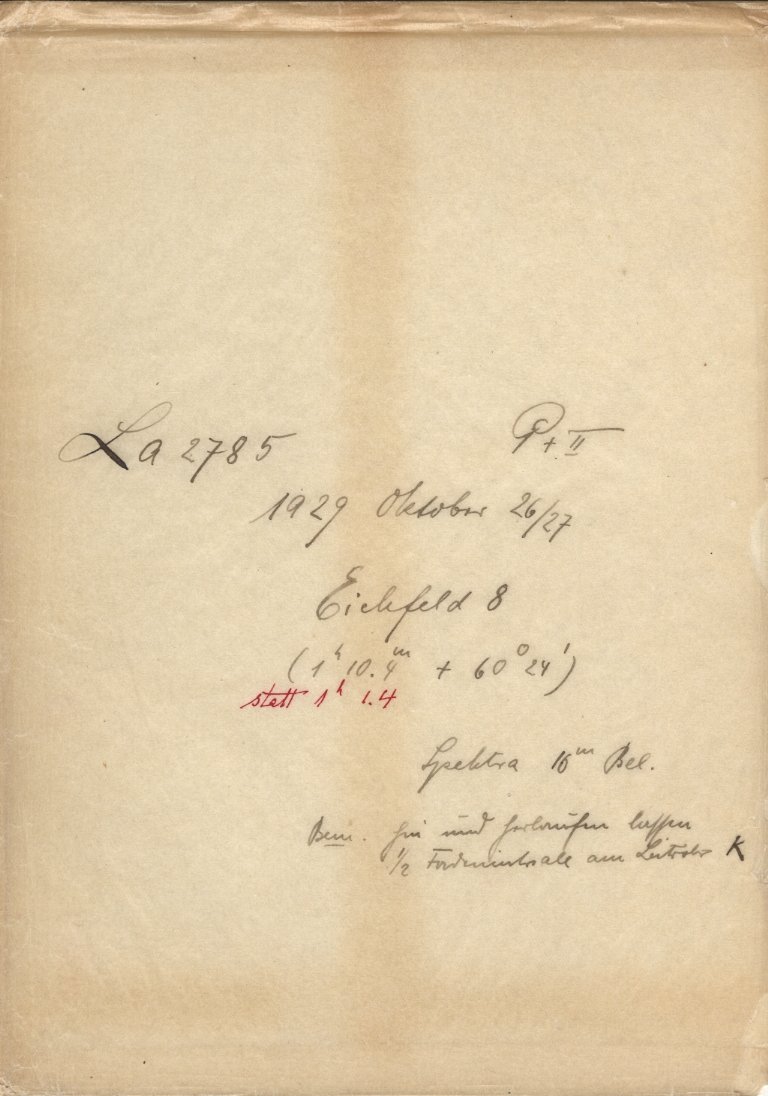 La 2785 P + II
1929 Oktober 26/27
Eichfeld 8
(1h 10.4m + 60° 24')
statt 1h 1.4
Spektra 16m Bel.
Bem. hin und herlaufen lassen
1/2 Fadenintervall am Leitrohr K